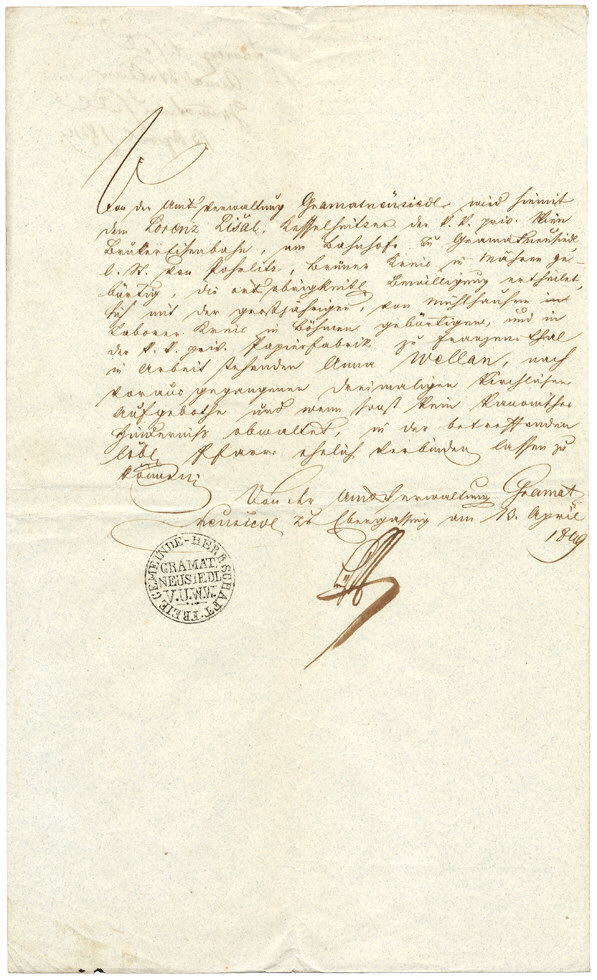 Von der Amtsverwaltung Gramatneusiedl wird hiemit
dem Lorenz Lišal, Kesselheitzer der k. k. priv. Wien
Bruker Eisenbahn, am Bahnhofe zu Gramatneusiedl
von Pohrlitz, Brüner Kreis in Mähren ge-
bürtig, die ortsobrigkeitl. Bewilligung ertheilet,
sich mit der großjährigen, von Mühlhausen im
Taborer Kreis in Böhmen gebürtigen, und in
der k. k. priv. Papierfabrik zu Franzensthal
in Arbeit stehenden Anna Wellan, nach
vorausgegangenen dreimaligen kirchlichen
Aufgebothe und wenn sonst kein kanonisches
Hinderniß obwaltet, in der betreffenden
löbl. Pfarr ehelich verbinden lassen zu
können.
Von der Amtsverwaltung Gramat-
neusiedl zu Ebergassing am 13. April
1849
FREIE GEMEINDE-HERRSCHAFT
GRAMAT
NEUSIEDL
V.U.W.W.